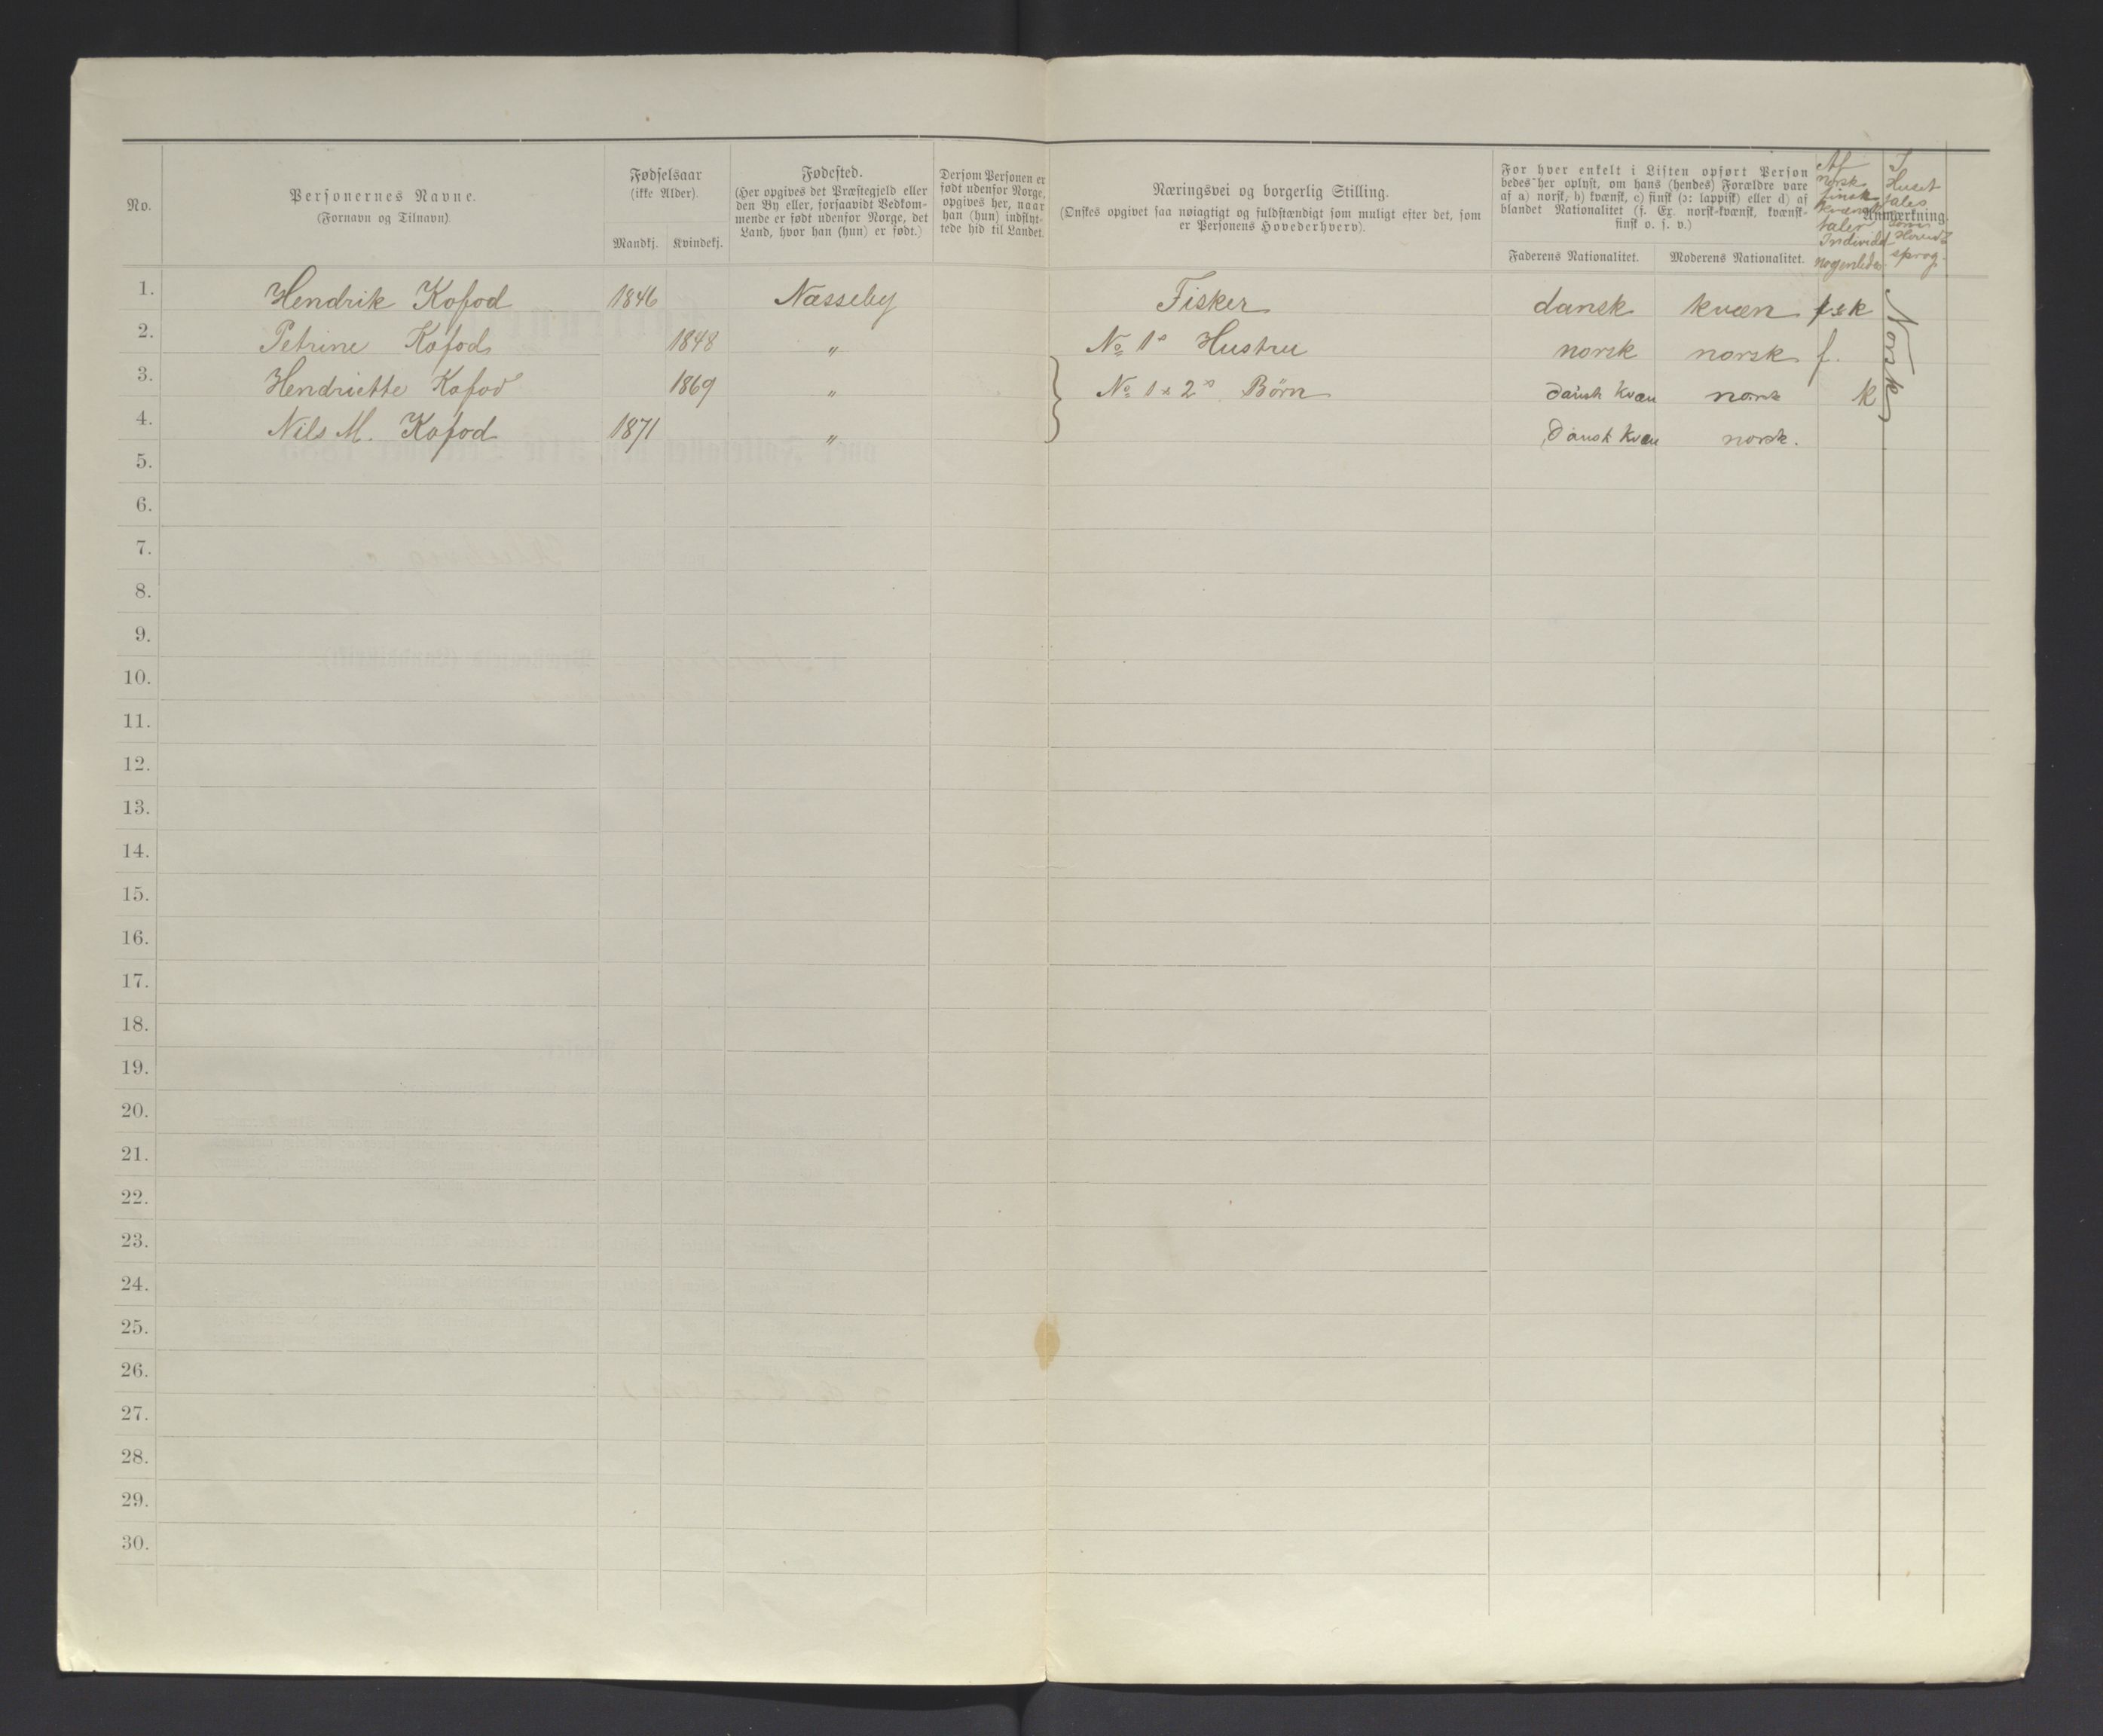 No.
Personernes Navne.
(Fornavn og Tilnavn)
Fødselsaar
(ikke Alder).
Mandkj. Kvindekj.
Fødested.
(Her opgives det Præstegjeld eller
den By eller, forsaavidt Vedkom-
mende er født udenfor Norge, det
Land, hvor han (hun) er født.)
Dersom Personen er
født udenfor Norge,
opgives her, naar
han (hun) indflyt-
tede hid til Landet.
Næringsvei og borgerlig Stilling.
(Ønskes opgivet saa nøiagtigt og fuldstændigt som muligt efter det, som
er Personens Hovederhverv).
For hver enkelt i Listen opført Person
bedes her oplyst, om hans (hendes) Forældre vare
af a) norsk, b) kvænsk, c) finsk (ɔ: lappisk) eller d) af
blandet Nationalitet (f. Ex. norsk-kvænsk, kvænsk-
finsk o. s. v.)
Faderens Nationalitet. Moderens Nationalitet.
Anmærkning.
Af
norsk
finsk
kvænsk
taler
Individet
nogenledes
I
Huset
tales
som
Hoved
sprog.
1. Hendrik Kofod 1846 Næsseby Fisker dansk kvæn f & k
2. Petrine Kofod 1848 " No 1s Hustru norsk norsk f.
3. Hendriette Kofod 1869 " No 1 & 2s Børn dansk kvæn norsk k
4. Nils M. Kofod 1871 " Dansk kvæn norsk.
Norsk
5.
6.
7.
8.
9.
10.
11.
12.
13.
14.
15.
16.
17.
18.
19.
20.
21.
22.
23.
24.
25.
26.
27.
28.
29.
30.